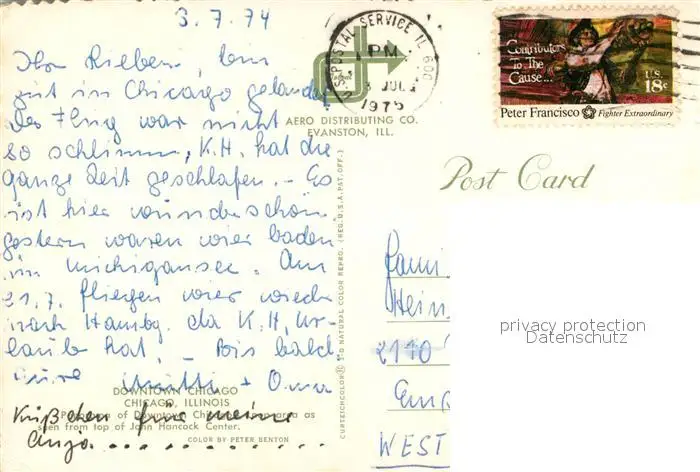 3.7.74
Ihr Lieben, bin
gut in Chicago gelandet
Der Flug war nicht
so schlimm, K.H. hat die
ganze Zeit geschlafen. - Es
ist hier wunderschön.
gestern waren wir baden
im Michigansee. Am
21.7. fliegen wir wieder
nach Hambg. da K.H. Ur-
laub hat. - Bis bald
eure Mutti + Oma
Küßchen für meine
Anja. . . . . . . . . . . .
POSTAL SERVICE IL 600
PM
JUL
1975
AERO DISTRIBUTING CO.
EVANSTON, ILL.
DOWNTOWN CHICAGO
CHICAGO, ILLINOIS
Panorama of Downtown Chicago area as
seen from top of John Hancock Center.
COLOR BY PETER BENTON
CURTEICHCOLOR® 3-D NATURAL COLOR REPRO. (REG. U.S.A. PAT. OFF.)
Contributors
To The
Cause...
U.S.
18c
Peter Francisco Fighter Extraordinary
Post Card
Fami
Hein
2140
WEST
privacy protection
Datenschutz